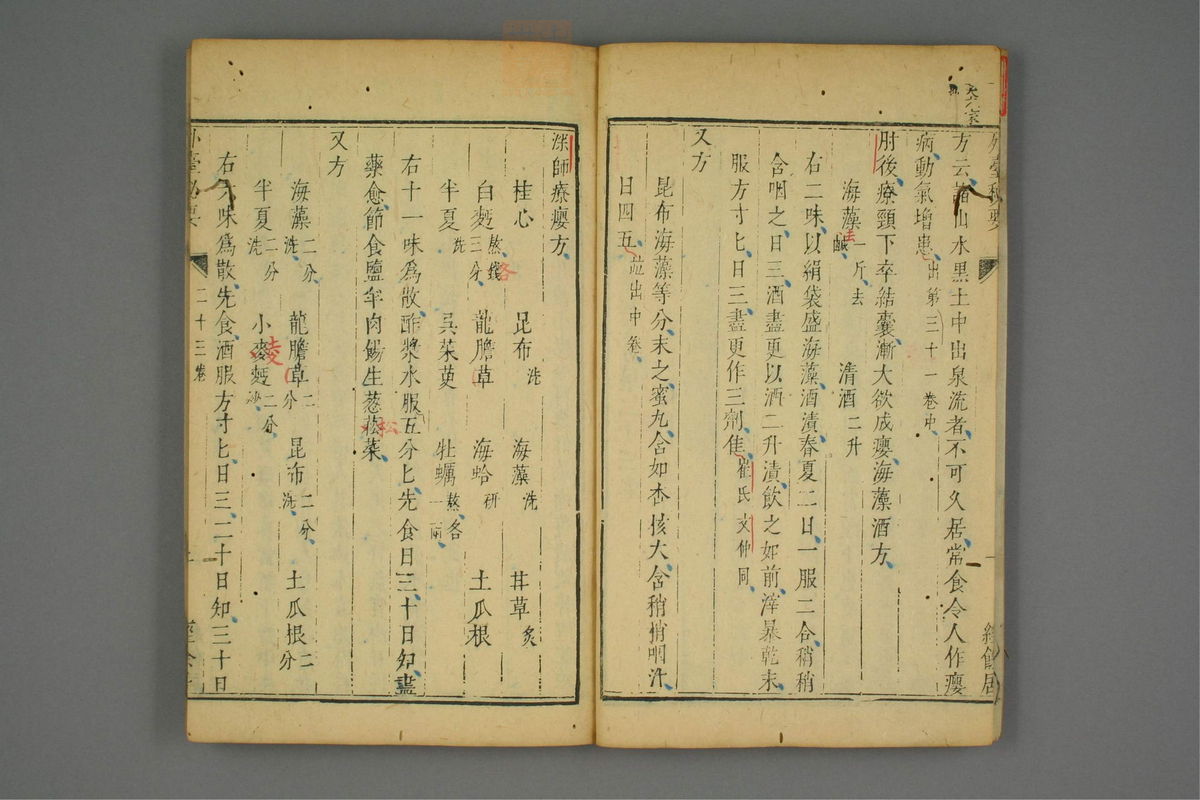 方云諸山水黑土中出泉流者不可久居常食令人作癭
病動氣增患出第三十一卷中
肘後療頸下卒結囊漸大欲成癭海藻酒方
海藻一斤去鹹 清酒二升
右二味以絹袋盛海藻酒漬春夏二日一服二合稍稍
含咽之日三酒盡更以酒二升漬飲之如前滓暴乾末
服方寸匕日三盡更作三劑佳崔氏文仲同
又方
昆布海藻等分末之蜜丸含如杏核大含稍稍咽汁
日四五並出中卷
深師療癭方
桂心 昆布洗 海藻洗 甘草炙
白麪三分熬 龍膽草 海蛤研 土瓜根
半夏洗 吳茱萸 牡蠣熬各一兩
右十一味爲散酢漿水服五分匕先食日三十日知盡
藥愈節食鹽羊肉餳生葱菘菜
又方
海藻二分洗 龍膽草二分 昆布二分洗 土瓜根二分
半夏二分洗 小麥麪二分炒
右六味爲散先食酒服方寸匕日三二十日知三十日
外臺秘要
二十三卷